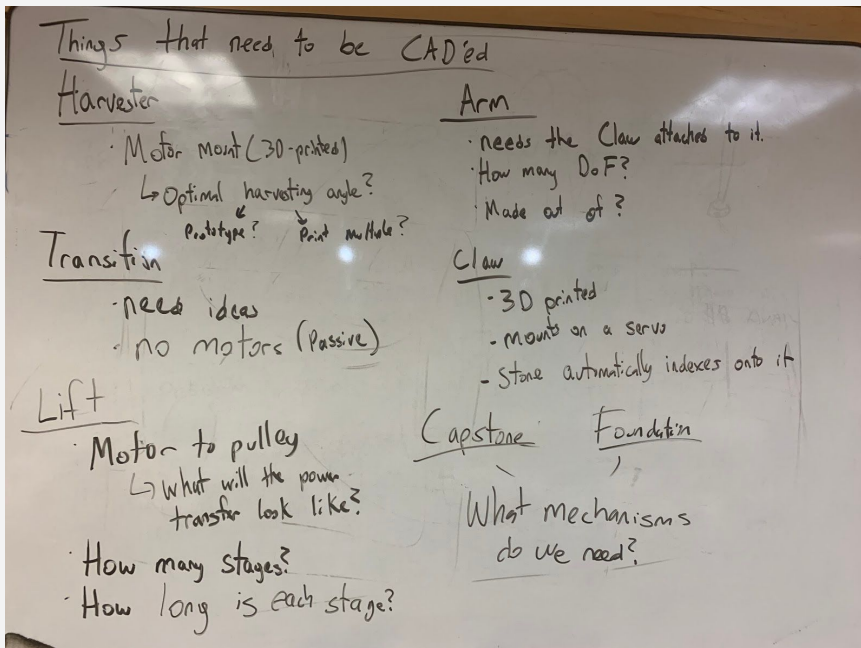 Things that need to be CAD'ed
Harvester
· Motor mount (3D-printed)
↳ Optimal harvesting angle?
Prototype? Print multiple?
Transition
· need ideas
· no motors (Passive)
Lift
· Motor to pulley
↳ What will the power
transfer look like?
· How many stages?
· How long is each stage?
Arm
· needs the Claw attached to it.
· How many DoF?
· Made out of?
Claw
· 3D printed
- mounts on a servo
- Stone automatically indexes onto it
Capstone Foundation
What mechanisms
do we need?